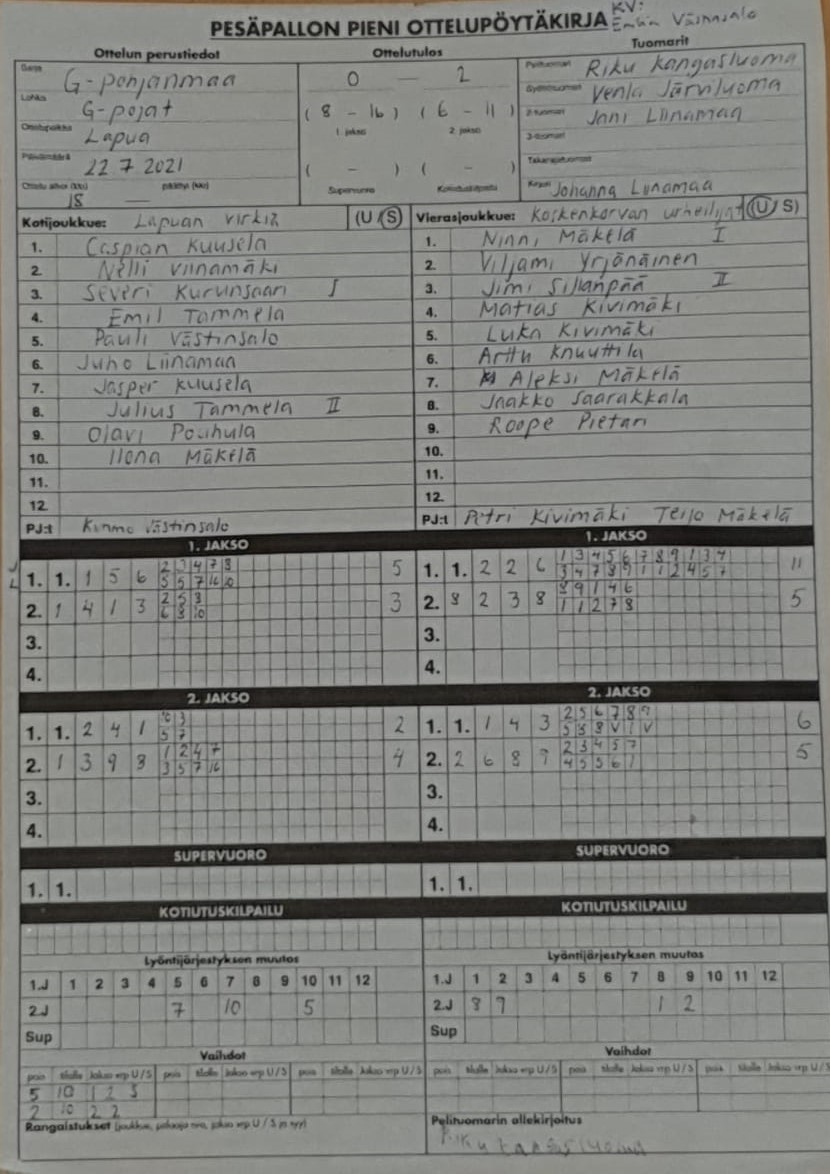 KV:
PESÄPALLON PIENI OTTELUPÖYTÄKIRJA Västinsalo
Ottelun perustiedot Ottelutulos Tuomarit
Sarja G-pohjanmaa 0 — 2 Pelituomari Riku Kangasluoma
Lohko G-pojat ( 8 - 16 ) ( 6 - 11 ) Venla Järviluoma
1. jakso 2. jakso 2-tuomari Jani Liinamaa
Ottelupaikka Lapua 3-tuomari
Päivämäärä 22 7 2021 ( - ) ( - ) Takarajatuomari
Ottelu alkoi (klo) 18 päättyi (klo) — Supervuoro Kotiutuskilpailu Kirjuri Johanna Liinamaa
Kotijoukkue: Lapuan Virkiä (U / S) Vierasjoukkue: Koskenkorvan urheilijat (U / S)
1. Caspian Kuusela 1. Ninni Mäkelä I
2. Nelli Viinamäki 2. Viljami Yrjänäinen
3. Severi Kurunsaari I 3. Jimi Sillanpää II
4. Emil Tammela 4. Matias Kivimäki
5. Pauli Västinsalo 5. Luka Kivimäki
6. Juho Liinamaa 6. Arttu Knuuttila
7. Jasper Kuusela 7. Aleksi Mäkelä
8. Julius Tammela II 8. Jaakko Saarakkala
9. Olavi Pouhula 9. Roope Pietari
10. Ilona Mäkelä 10.
11. 11.
12. 12.
PJ:t Kimmo Västinsalo PJ:t Petri Kivimäki Teijo Mäkelä
1. JAKSO 1. JAKSO
2 3 4 7 8 1 3 4 5 6 7 8 9 1 3 4
1. 1. 1 5 6 5 5 7 10 10 5 1. 1. 2 2 6 3 4 7 8 9 1 1 2 4 5 7 11
2 5 8 8 9 1 4 6
2. 1 4 1 3 6 8 10 3 2. 8 2 3 8 1 1 2 7 8 5
3. 3.
4. 4.
2. JAKSO 2. JAKSO
10 3 2 5 6 7 8 9
1. 1. 2 4 1 5 7 2 1. 1. 1 4 3 5 8 8 V 1 V 6
1 2 4 7 2 3 4 5 7
2. 1 3 9 8 3 5 7 10 4 2. 2 6 8 9 4 5 5 6 1 5
3. 3.
4. 4.
SUPERVUORO SUPERVUORO
1. 1. 1. 1.
KOTIUTUSKILPAILU KOTIUTUSKILPAILU
Lyöntijärjestyksen muutos Lyöntijärjestyksen muutos
1.J 1 2 3 4 5 6 7 8 9 10 11 12 1.J 1 2 3 4 5 6 7 8 9 10 11 12
2.J 7 10 5 2.J 8 9 1 2
Sup Sup
Vaihdot Vaihdot
pois tilalle Jakso vrp U/S pois tilalle Jakso vrp U/S pois tilalle Jakso vrp U/S pois tilalle Jakso vrp U/S pois tilalle Jakso vrp U/S pois tilalle Jakso vrp U/S
5 10 1 2 S
2 10 2 2
Rangaistukset (joukkue, pelaaja nro, jakso vrp U / S ja syy) Pelituomarin allekirjoitus